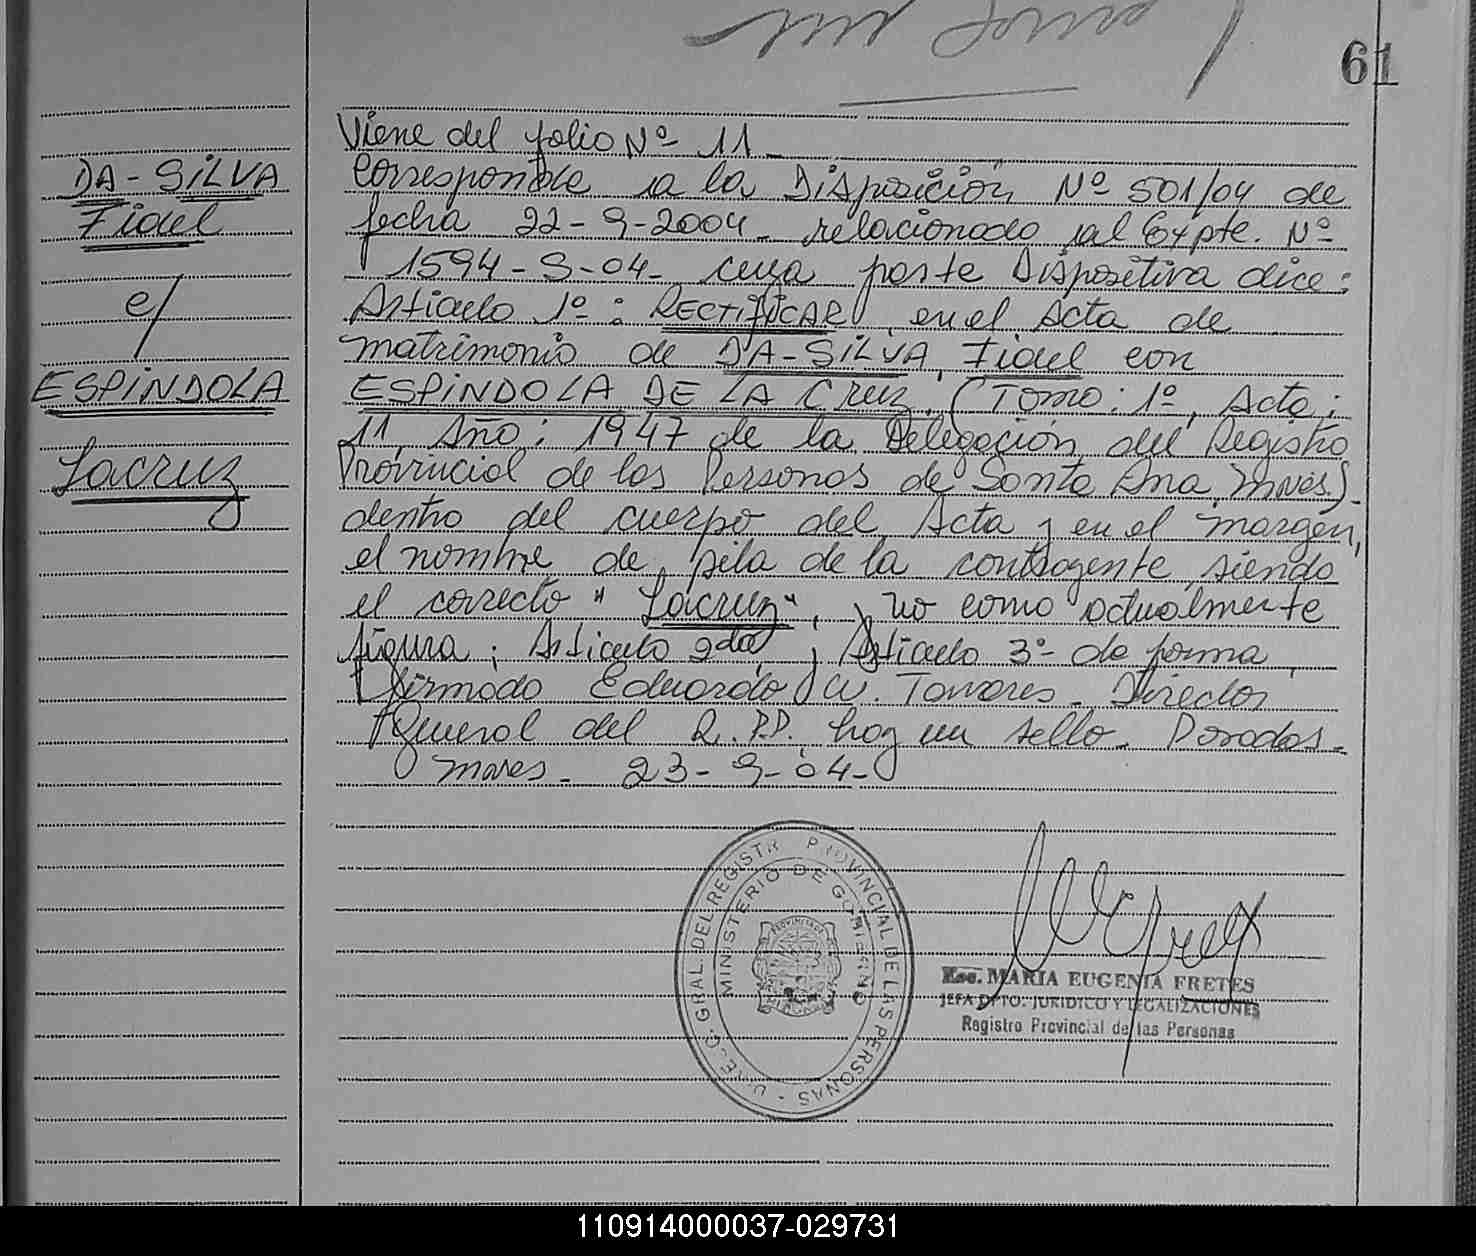 61
DA-SILVA
Fidel
c/
ESPINDOLA
Lacruz
Viene del folio Nº 11-
Corresponde a la Disposición Nº 501/04 de
fecha 22-9-2004- relacionado al Expte. Nº
1594-S-04- cuya parte Dispositiva dice:
Artículo 1º: RECTIFICAR en el Acta de
matrimonio de DA-SILVA, Fidel con
ESPINDOLA DE LA CRUZ, (Tomo: 1º, Acta:
11, Año: 1947 de la Delegación del Registro
Provincial de las Personas de Santa Ana, Mnes).
dentro del cuerpo del Acta y en el margen,
el nombre de pila de la contrayente siendo
el correcto "Lacruz", y no como actualmente
figura; Artículo 2do y Artículo 3º de forma.
Firmado Eduardo W. Tavares- Director
General del R.P.P. hay un sello. Posadas-
mnes- 23-9-04-
DIREC. GRAL. DEL REGISTR PROVINCIAL DE LAS PERSONAS
MINISTERIO DE GOBIERNO
Esc. MARIA EUGENIA FRETES
JEFA DPTO. JURIDICO Y LEGALIZACIONES
Registro Provincial de las Personas
110914000037-029731